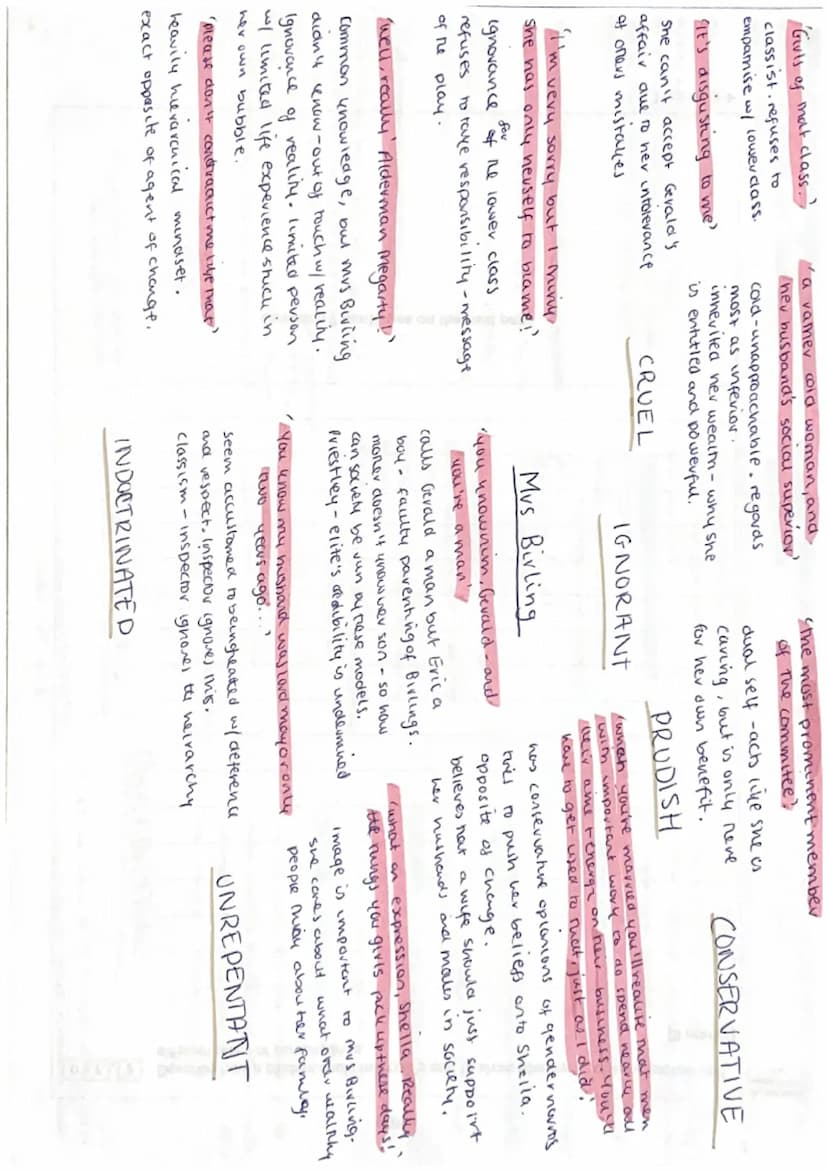 'Girls of that class.'
classist. refuses to
empathise w/ lower class.
'It's disgusting to me'
she can't accept Gerald's
affair due to her intolerance
of others mistakes
'a rather cold woman, and
her husband's social superior'
cold - unapproachable. regards
most as inferior.
inherited her wealth - why she
is entitled and powerful.
'the most prominent member
of the commitee'.
dual self - acts like she is
caring, but is only there
for her own benefit.
CONSERVATIVE
CRUEL
IGNORANT
PRUDISH
'I'm very sorry but I think
she has only herself to blame.'
ignorance for of the lower class
refuses to take responsibility - message
of the play.
Mrs Birling
'when you're married you'll realise that men
with important work to do spend nearly all
their time + energy on their business. You'll
have to get used to that, just as I did.'
has conservative opinions of gender norms
tries to push her beliefs onto Sheila.
opposite of change.
believes that a wife should just support
her husbands and males in society.
'you know him, Gerald - and
you're a man'
calls Gerald a man but Eric a
boy - faulty parenting of Birlings.
mother doesn't know her son - so how
can society be run by these models
Priestley - elite's credibility is undermined
'Well, really! Alderman Meggarty!'
common knowledge, but Mrs Birling
didn't know - out of touch w/ reality.
ignorance of reality. limited person
w/ limited life experience stuck in
her own bubble.
'What an expression, Sheila. Really
the things you girls pick up these days!'
image is important to Mrs Birling.
she cares about what other wealthy
people think about her family.
'You know my husband was Lord mayor only
two years ago...'
seem accustomed to being treated w/ deference
and respect. Inspector ignores this.
classism - inspector ignores the heirarchy
'please don't contradict me like that'
heavily hierarchical mindset.
exact opposite of agent of change.
UNREPENTANT
INDOCTRINATED